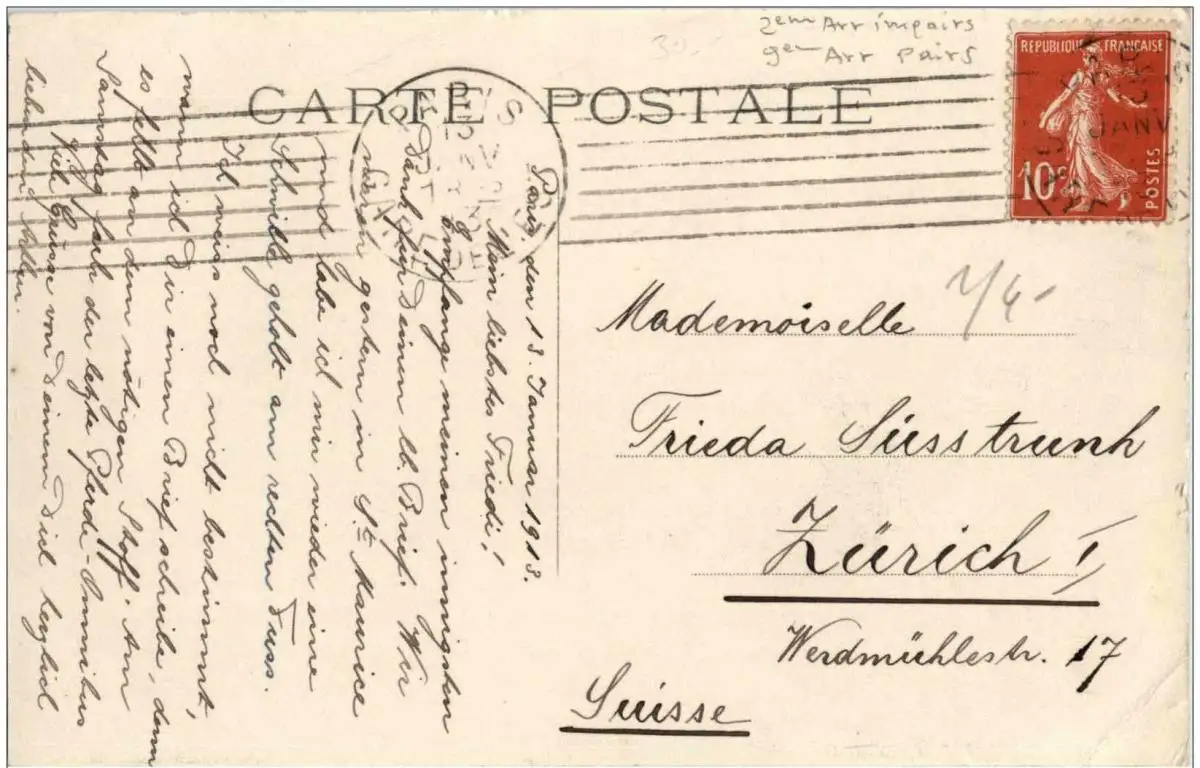 2em Arr impairs
9em Arr Pairs
30.-
CARTE POSTALE
REPUBLIQUE FRANÇAISE
10c
POSTES
JANV
Paris, den 13. Januar 1913.
Mein liebstes Friedi!
Empfange meinen innigsten
Dank für Deinen lb. Brief. Wir
waren gestern in St. Maurice
und habe ich mir wieder eine
Schwiele geholt am rechten Fuss.
Ich weiss noch nicht bestimmt,
wann ich Dir einen Brief schreibe, denn
es fehlt an dem nötigen Stoff. Am
Samstag fuhr der letzte Pferde-Omnibus
Viele Grüsse von Deinem Dich herzlich
liebenden
Mademoiselle
1/4-
Frieda Süsstrunk
Zürich I
Werdmühlestr. 17
Suisse